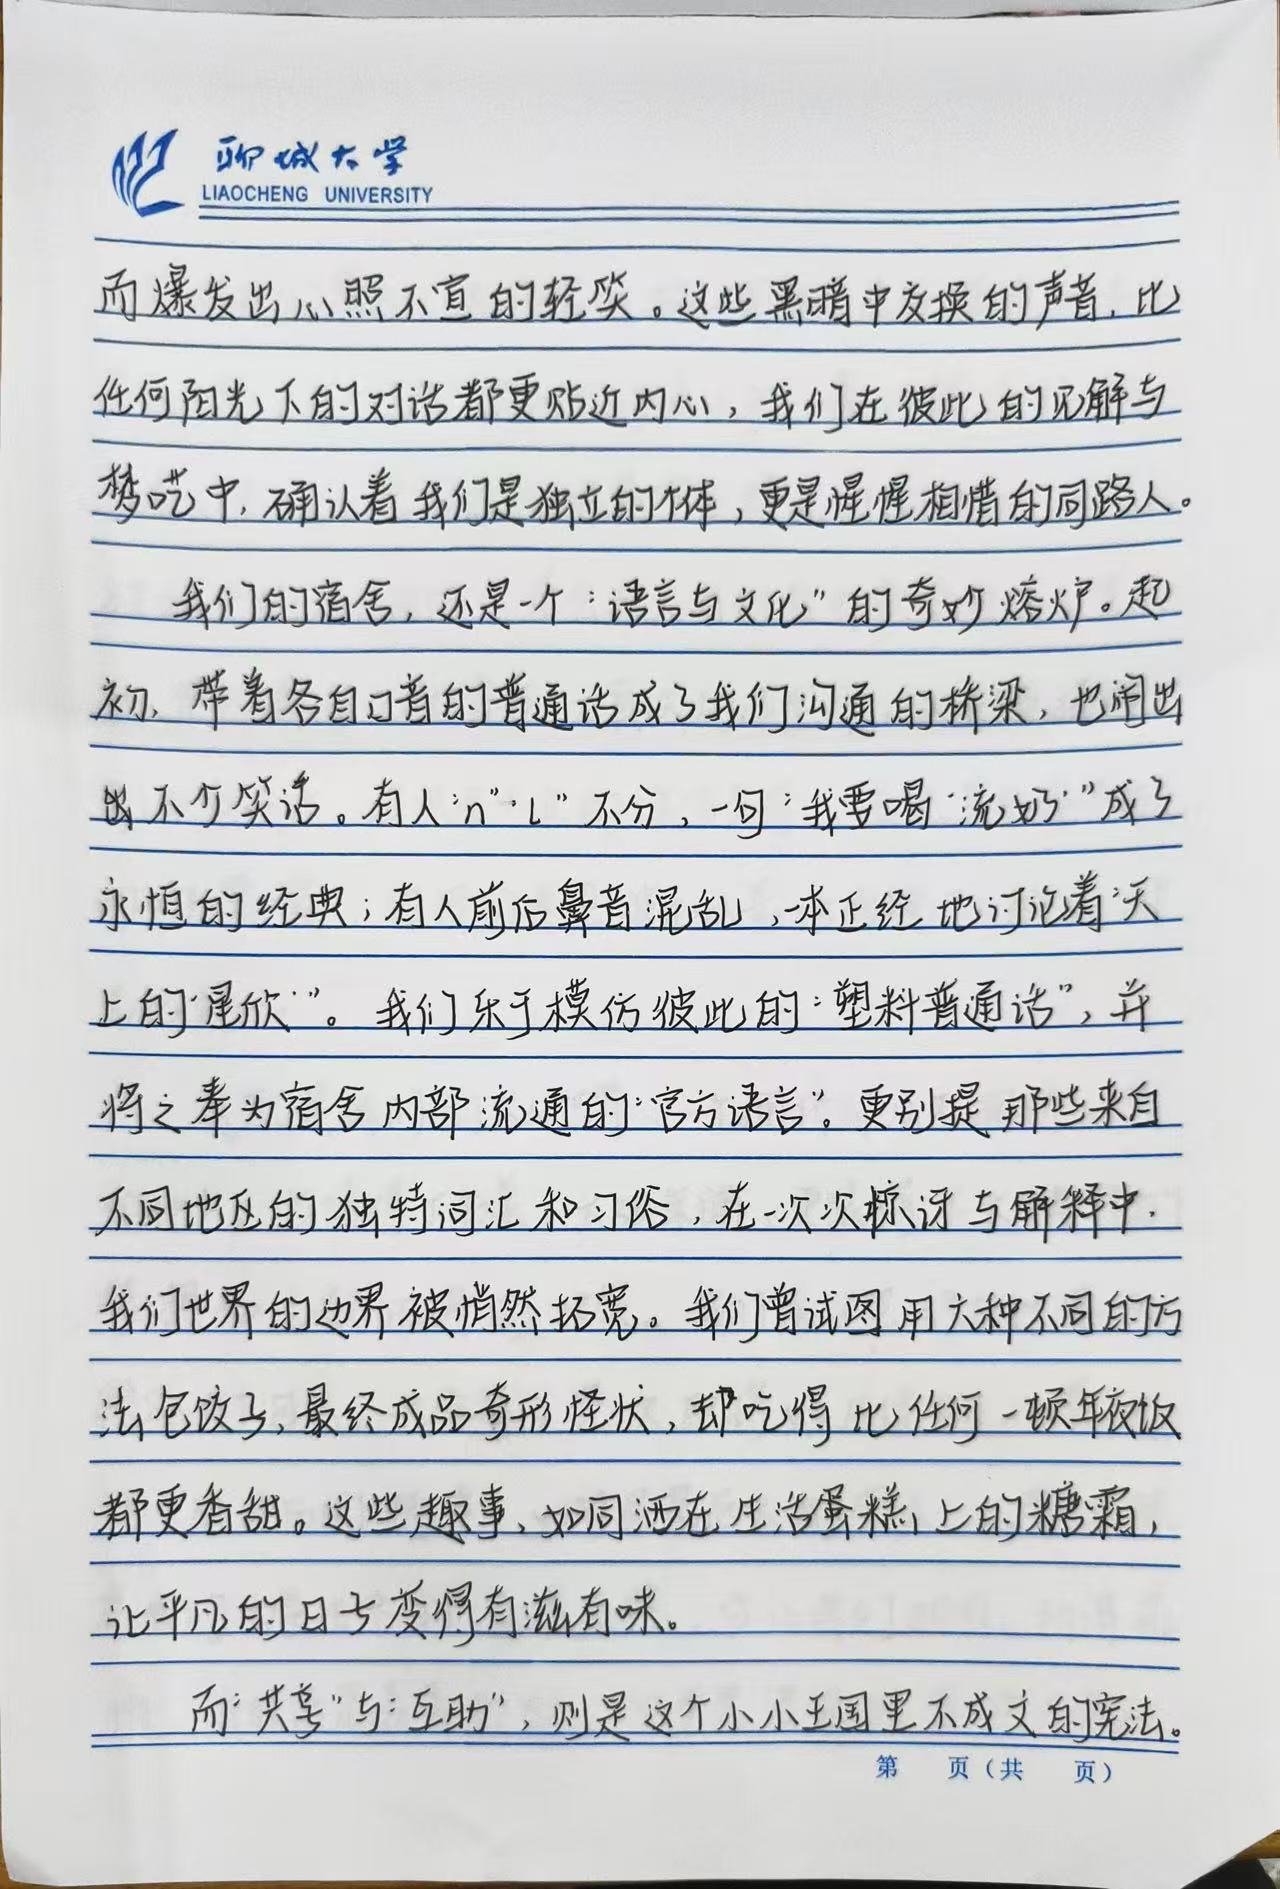 聊城大学
LIAOCHENG UNIVERSITY
而爆发出心照不宣的轻笑。这些黑暗中交换的声音，比
任何阳光下的对话都更贴近内心，我们在彼此的见解与
梦呓中，确认着我们是独立的个体，更是惺惺相惜的同路人。
我们的宿舍，还是一个“语言与文化”的奇妙熔炉。起
初，带着各自口音的普通话成了我们沟通的桥梁，也闹出
出不少笑话。有人“n”“l”不分，一句“我要喝‘流奶’”成了
永恒的经典；有人前后鼻音混乱，一本正经地讨论着“天
上的‘星欣’”。我们乐于模仿彼此的“塑料普通话”，并
将之奉为宿舍内部流通的“官方语言”。更别提那些来自
不同地区的独特词汇和习俗，在一次次惊讶与解释中，
我们世界的边界被悄然拓宽。我们曾试图用六种不同的方
法包饺子，最终成品奇形怪状，却吃得比任何一顿年夜饭
都更香甜。这些趣事，如同洒在生活蛋糕上的糖霜，
让平凡的日子变得有滋有味。
而“共享”与“互助”，则是这个小小王国里不成文的宪法。
第 页（共 页）